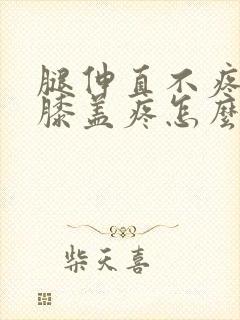 腿伸直不疼
膝盖疼怎麼
柴天喜